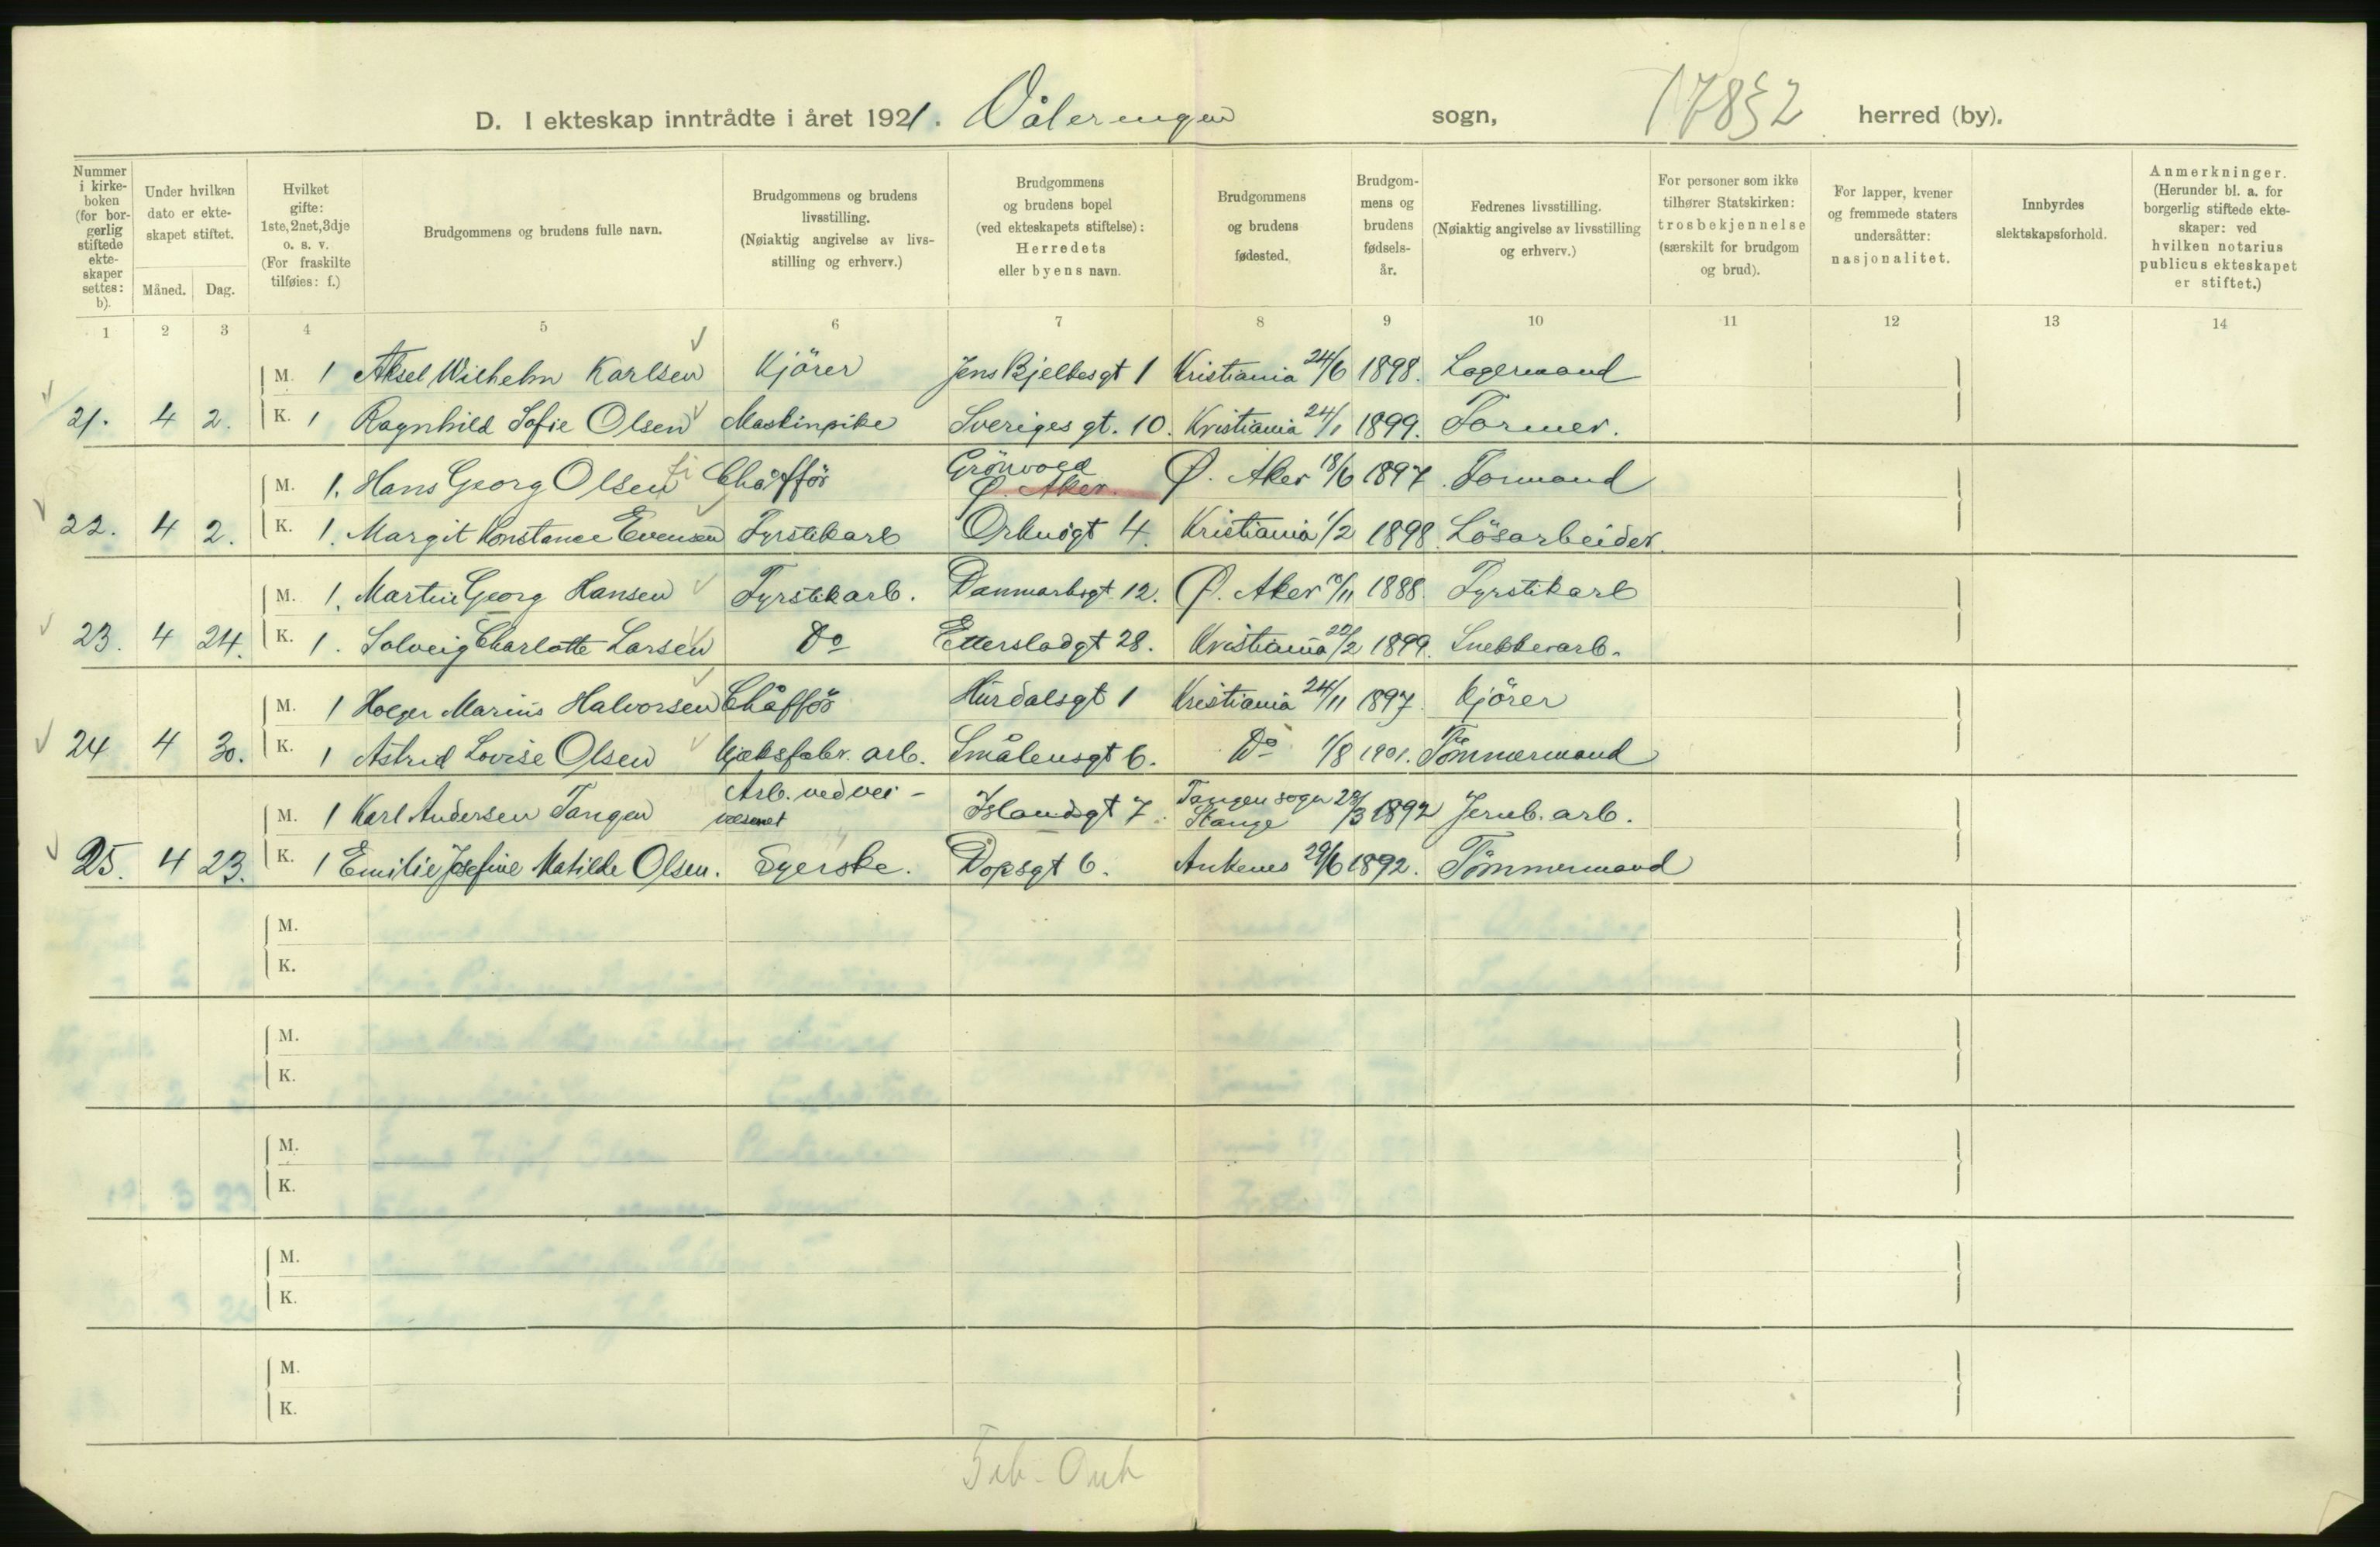 D. I ekteskap inntrådte i året 1921. Våleringen sogn, 17832 herred (by).
Nummer i kirkeboken (for borgerlig stiftede ekteskaper settes: b).
Under hvilken dato er ekteskapet stiftet.
Måned. Dag.
Hvilket gifte: 1ste, 2net, 3dje o. s. v. (For fraskilte tilføies: f.)
Brudgommens og brudens fulle navn.
Brudgommens og brudens livsstilling. (Nøiaktig angivelse av livsstilling og erhverv.)
Brudgommens og brudens bopel (ved ekteskapets stiftelse): Herredets eller byens navn.
Brudgommens og brudens fødested.
Brudgommens og brudens fødselsår.
Fedrenes livsstilling. (Nøiaktig angivelse av livsstilling og erhverv.)
For personer som ikke tilhører Statskirken: trosbekjennelse (særskilt for brudgom og brud).
For lapper, kvener og fremmede staters undersåtter: nasjonalitet.
Innbyrdes slektskapsforhold.
Anmerkninger. (Herunder bl. a. for borgerlig stiftede ekteskaper: ved hvilken notarius publicus ekteskapet er stiftet.)
1 2 3 4 5 6 7 8 9 10 11 12 13 14
M. 1 Aksel Wilhelm Karlsen Kjörer Jens Bjelkesgt 1 Kristiania 24/6 1898. Lagermand
21. 4 2. K. 1 Ragnhild Sofie Olsen Maskinpike Sveriges gt. 10. Kristiania 24/1 1899. Former.
M. 1. Hans Georg Olsen Chåfför Grönvold Ø. Aker. Ø. Aker 18/6 1897. Formand
22. 4 2. K. 1. Margit Konstance Evensen Fyrstikarb Orknögt 4. Kristiania 1/2 1898. Lösarbeider.
M. 1. Martin Georg Hansen Fyrstikarb. Danmarksgt. 12. Ø. Aker 10/11 1888. Fyrstikarb
23. 4 24. K. 1. Solveig Charlotte Larsen Do Etterstadgt 28. Kristiania 22/2 1899. Snekkerarb.
M. 1 Holger Marius Halvorsen Chåfför Hurdalsgt 1 Kristiania 24/11 1897. Kjörer
24 4 30. K. 1 Astrid Lovise Olsen Kjeksfabr. arb. Smålensgt 6. Do 1/8 1901. Tömmermand
M. 1 Karl Andersen Tangen Arb. ved veivæsenet Islandsgt 7. Tangen sogn Stange 23/3 1892 Jernb. arb.
25. 4 23. K. 1 Emilie Josefine Matilde Olsen. Syerske. Dopsgt 6. Ankenes 29/6 1892. Tömmermand
M.
K.
M.
K.
M.
K.
M.
K.
M.
K.